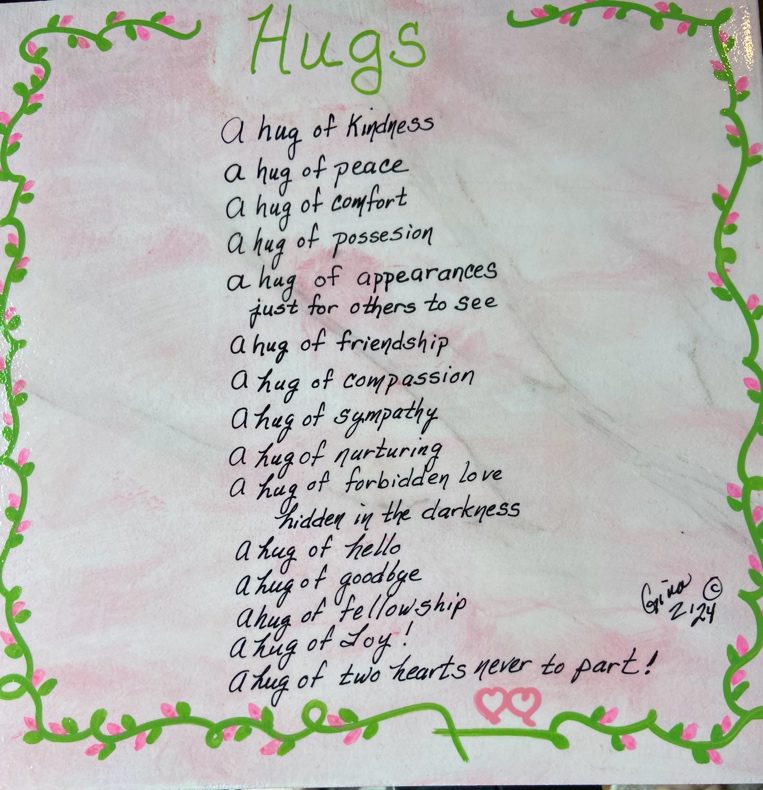 Hugs
A hug of Kindness
A hug of peace
A hug of comfort
A hug of possesion
A hug of appearances
just for others to see
A hug of friendship
A hug of compassion
A hug of sympathy
A hug of nurturing
A hug of forbidden love
hidden in the darkness
A hug of hello
A hug of goodbye
A hug of fellowship
A hug of Joy!
A hug of two hearts never to part!
©
2'24